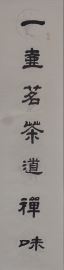 一壺茗茶道禪味